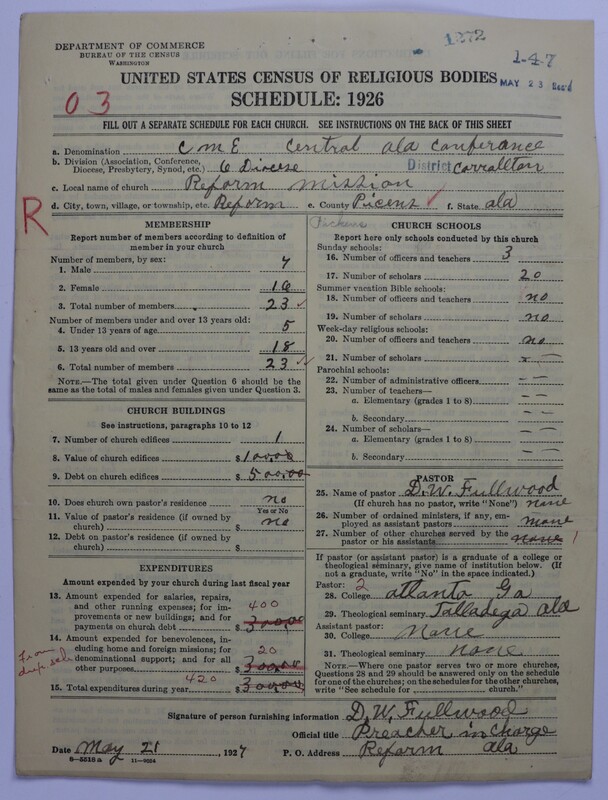 1272
1-47
DEPARTMENT OF COMMERCE
BUREAU OF THE CENSUS
WASHINGTON
MAY 23 Rec'd
UNITED STATES CENSUS OF RELIGIOUS BODIES
03
SCHEDULE: 1926
FILL OUT A SEPARATE SCHEDULE FOR EACH CHURCH. SEE INSTRUCTIONS ON THE BACK OF THIS SHEET
a. Denomination CME Central Ala Conferance
b. Division (Association, Conference, Diocese, Presbytery, Synod, etc.) 6 Diocese District Corrallton
c. Local name of church Reform mission
d. City, town, village, or township, etc. Reform e. County Picens ✓ f. State ala
R
Pickens
MEMBERSHIP
Report number of members according to definition of
member in your church
Number of members, by sex:
1. Male 7
2. Female 16
3. Total number of members 23 ✓
Number of members under and over 13 years old:
4. Under 13 years of age 5
5. 13 years old and over 18
6. Total number of members 23 ✓
NOTE.—The total given under Question 6 should be
same as the total of males and females given under Question 3.
CHURCH BUILDINGS
See instructions, paragraphs 10 to 12
7. Number of church edifices 1
8. Value of church edifices $ 1000.00
9. Debt on church edifices $ 500.00
10. Does church own pastor's residence no
Yes or No
11. Value of pastor's residence (if owned by
church) $ no
12. Debt on pastor's residence (if owned by
church) $
EXPENDITURES
Amount expended by your church during last fiscal year
13. Amount expended for salaries, repairs,
and other running expenses; for improvements or new buildings; and for
payments on church debt $ 400 300.00
14. Amount expended for benevolences,
including home and foreign missions; for
denominational support; and for all
other purposes $ 20 300.00
From dup sch
15. Total expenditures during year $ 420 300.00
CHURCH SCHOOLS
Report here only schools conducted by this church
Sunday schools:
16. Number of officers and teachers 3
17. Number of scholars 20
Summer vacation Bible schools:
18. Number of officers and teachers no
19. Number of scholars no
Week-day religious schools:
20. Number of officers and teachers no
21. Number of scholars
Parochial schools:
22. Number of administrative officers
23. Number of teachers—
a. Elementary (grades 1 to 8)
b. Secondary
24. Number of scholars—
a. Elementary (grades 1 to 8)
b. Secondary
PASTOR
25. Name of pastor D. W. Fullwood
(If church has no pastor, write "None") none
26. Number of ordained ministers, if any, employed as assistant pastors none
27. Number of other churches served by the
pastor or his assistants none 1
If pastor (or assistant pastor) is a graduate of a college or
theological seminary, give name of institution below. (If
not a graduate, write "No" in the space indicated.)
Pastor: 2
28. College atlanta Ga
29. Theological seminary Talladega ala
Assistant pastor:
30. College None
31. Theological seminary none
NOTE.—Where one pastor serves two or more churches,
Questions 28 and 29 should be answered only on the schedule
for one of the churches; on the schedules for the other churches,
write "See schedule for church."
Signature of person furnishing information D. W. Fullwood
Official title Preacher in Charge
Date May 21, 1927 P. O. Address Reform ala
8—5518 a 11—9024